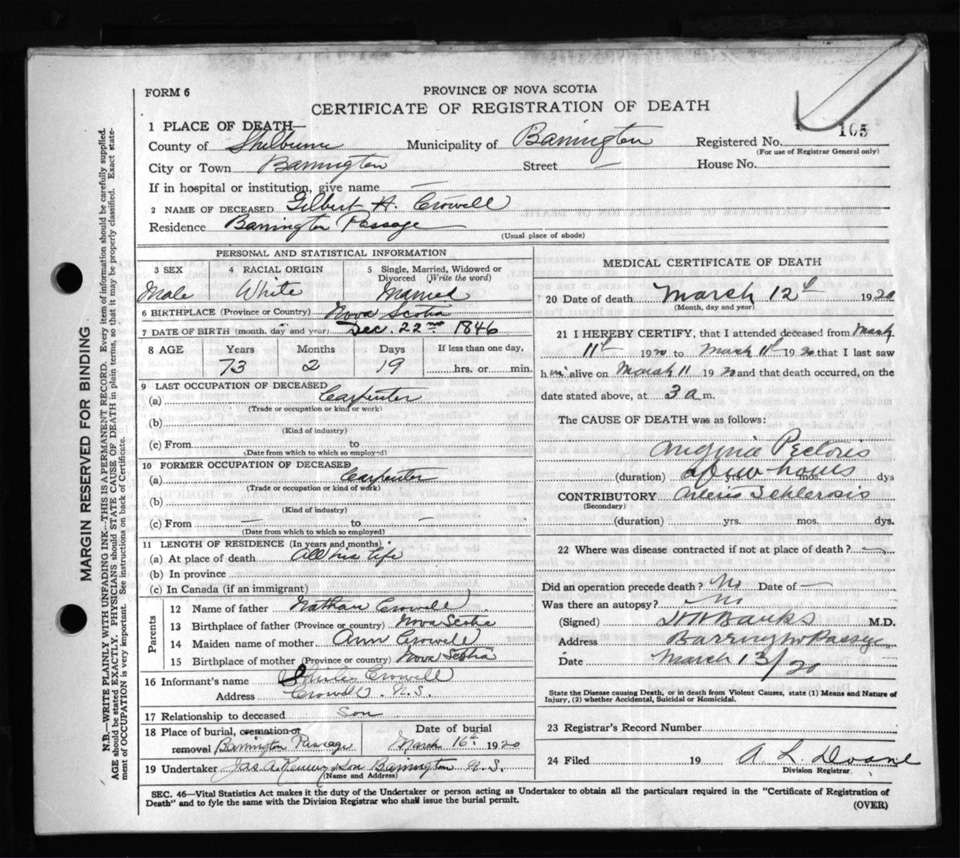 FORM 6
PROVINCE OF NOVA SCOTIA
CERTIFICATE OF REGISTRATION OF DEATH
105
1 PLACE OF DEATH—
County of Shelburne Municipality of Barrington Registered No.
(For use of Registrar General only)
City or Town Barrington Street — House No.
If in hospital or institution, give name —
2 NAME OF DECEASED Gilbert H. Crowell
Residence Barrington Passage
(Usual place of abode)
PERSONAL AND STATISTICAL INFORMATION
3 SEX 4 RACIAL ORIGIN 5 Single, Married, Widowed or Divorced (Write the word)
Male White Married
6 BIRTHPLACE (Province or Country) Nova Scotia
7 DATE OF BIRTH (month, day and year) Dec. 22nd 1846
8 AGE Years Months Days If less than one day,
73 2 19 hrs. or min.
9 LAST OCCUPATION OF DECEASED
(a) Carpenter
(Trade or occupation or kind or work)
(b)
(Kind of industry)
(c) From to
(Date from which to which so employed)
10 FORMER OCCUPATION OF DECEASED
(a) Carpenter
(Trade or occupation or kind of work)
(b)
(Kind of industry)
(c) From — to —
(Date from which to which so employed)
11 LENGTH OF RESIDENCE (In years and months)
(a) At place of death All his life
(b) In province
(c) In Canada (if an immigrant)
Parents
12 Name of father Nathan Crowell
13 Birthplace of father (Province or country) Nova Scotia
14 Maiden name of mother Ann Crowell
15 Birthplace of mother (Province or country) Nova Scotia
16 Informant's name Crowell
Address Crowell. N.S.
17 Relationship to deceased Son
18 Place of burial, cremation or removal Barrington Passage
Date of burial March 16th 1920
19 Undertaker Jas A. & son Barrington N.S.
(Name and Address)
MEDICAL CERTIFICATE OF DEATH
20 Date of death March 12th 1920
(Month, day and year)
21 I HEREBY CERTIFY, that I attended deceased from March
11th 1920 to March 11th 1920 that I last saw
him alive on March 11 1920 and that death occurred, on the
date stated above, at 3 a m.
The CAUSE OF DEATH was as follows:
Angina Pectoris
(duration) a few hours dys
CONTRIBUTORY Arterio Schlerosis
(Secondary)
(duration) yrs. mos. dys.
22 Where was disease contracted if not at place of death? —
Did an operation precede death? No Date of —
Was there an autopsy? No
(Signed) Banks M.D.
Address Barrington Passage
Date March 13/20
State the Disease causing Death, or in death from Violent Causes, state (1) Means and Nature of
Injury, (2) whether Accidental, Suicidal or Homicidal.
23 Registrar's Record Number
24 Filed 19 A. L. Doane
Division Registrar
SEC. 46—Vital Statistics Act makes it the duty of the Undertaker or person acting as Undertaker to obtain all the particulars required in the "Certificate of Registration of
Death" and to fyle the same with the Division Registrar who shall issue the burial permit.
(OVER)
MARGIN RESERVED FOR BINDING
N.B.—WRITE PLAINLY WITH UNFADING INK—THIS IS A PERMANENT RECORD. Every item of information should be carefully supplied.
AGE should be stated EXACTLY. PHYSICIANS should STATE CAUSE OF DEATH in plain terms, so that it may be properly classified. Exact state-
ment of OCCUPATION is very important. See instructions on back of Certificate.